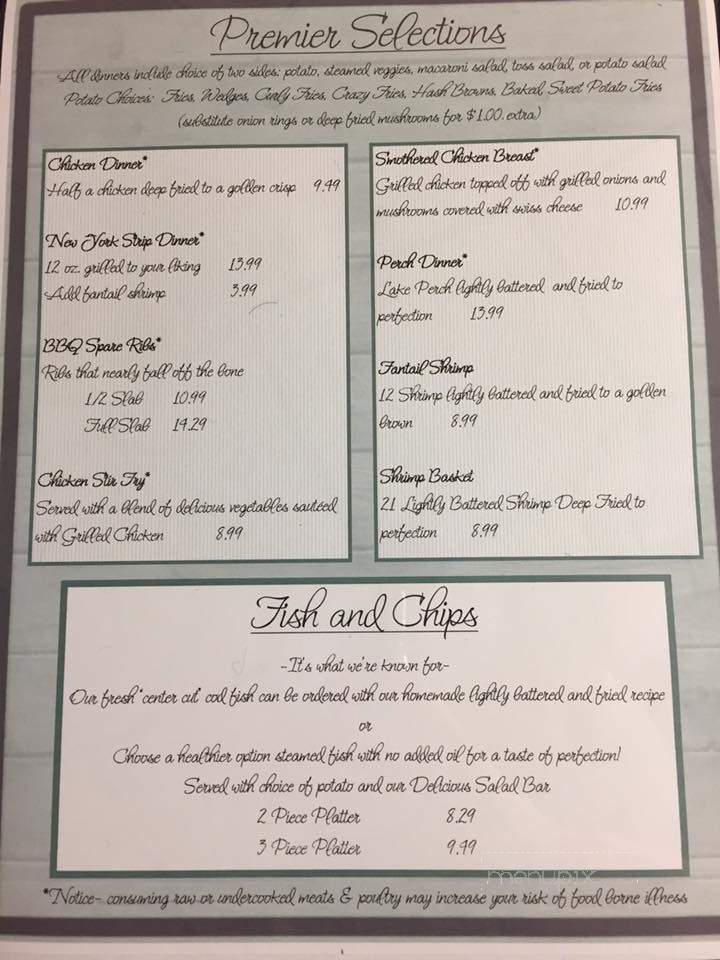 Premier Selections
All dinners include choice of two sides: potato, steamed veggies, macaroni salad, toss salad, or potato salad
Potato Choices: Fries, Wedges, Curly Fries, Crazy Fries, Hash Browns, Baked, Sweet Potato Fries
(substitute onion rings or deep fried mushrooms for $1.00 extra)
Chicken Dinner*
Half a chicken deep fried to a golden crisp 9.49
New York Strip Dinner*
12 oz. grilled to your liking 13.99
Add fantail shrimp 3.99
BBQ Spare Ribs*
Ribs that nearly fall off the bone
1/2 Slab 10.99
Full Slab 14.29
Chicken Stir Fry*
Served with a blend of delicious vegetables sautéed
with Grilled Chicken 8.99
Smothered Chicken Breast*
Grilled chicken topped off with grilled onions and
mushrooms covered with swiss cheese 10.99
Perch Dinner*
Lake Perch lightly battered and fried to
perfection 13.99
Fantail Shrimp
12 Shrimp lightly battered and fried to a golden
brown 8.99
Shrimp Basket
21 Lightly Battered Shrimp Deep Fried to
perfection 8.99
Fish and Chips
-It's what we're known for-
Our fresh "center cut" cod fish can be ordered with our homemade lightly battered and fried recipe
or
Choose a healthier option steamed fish with no added oil for a taste of perfection!
Served with choice of potato and our Delicious Salad Bar
2 Piece Platter 8.29
3 Piece Platter 9.49
menupix
*Notice- consuming raw or undercooked meats & poultry may increase your risk of food borne illness